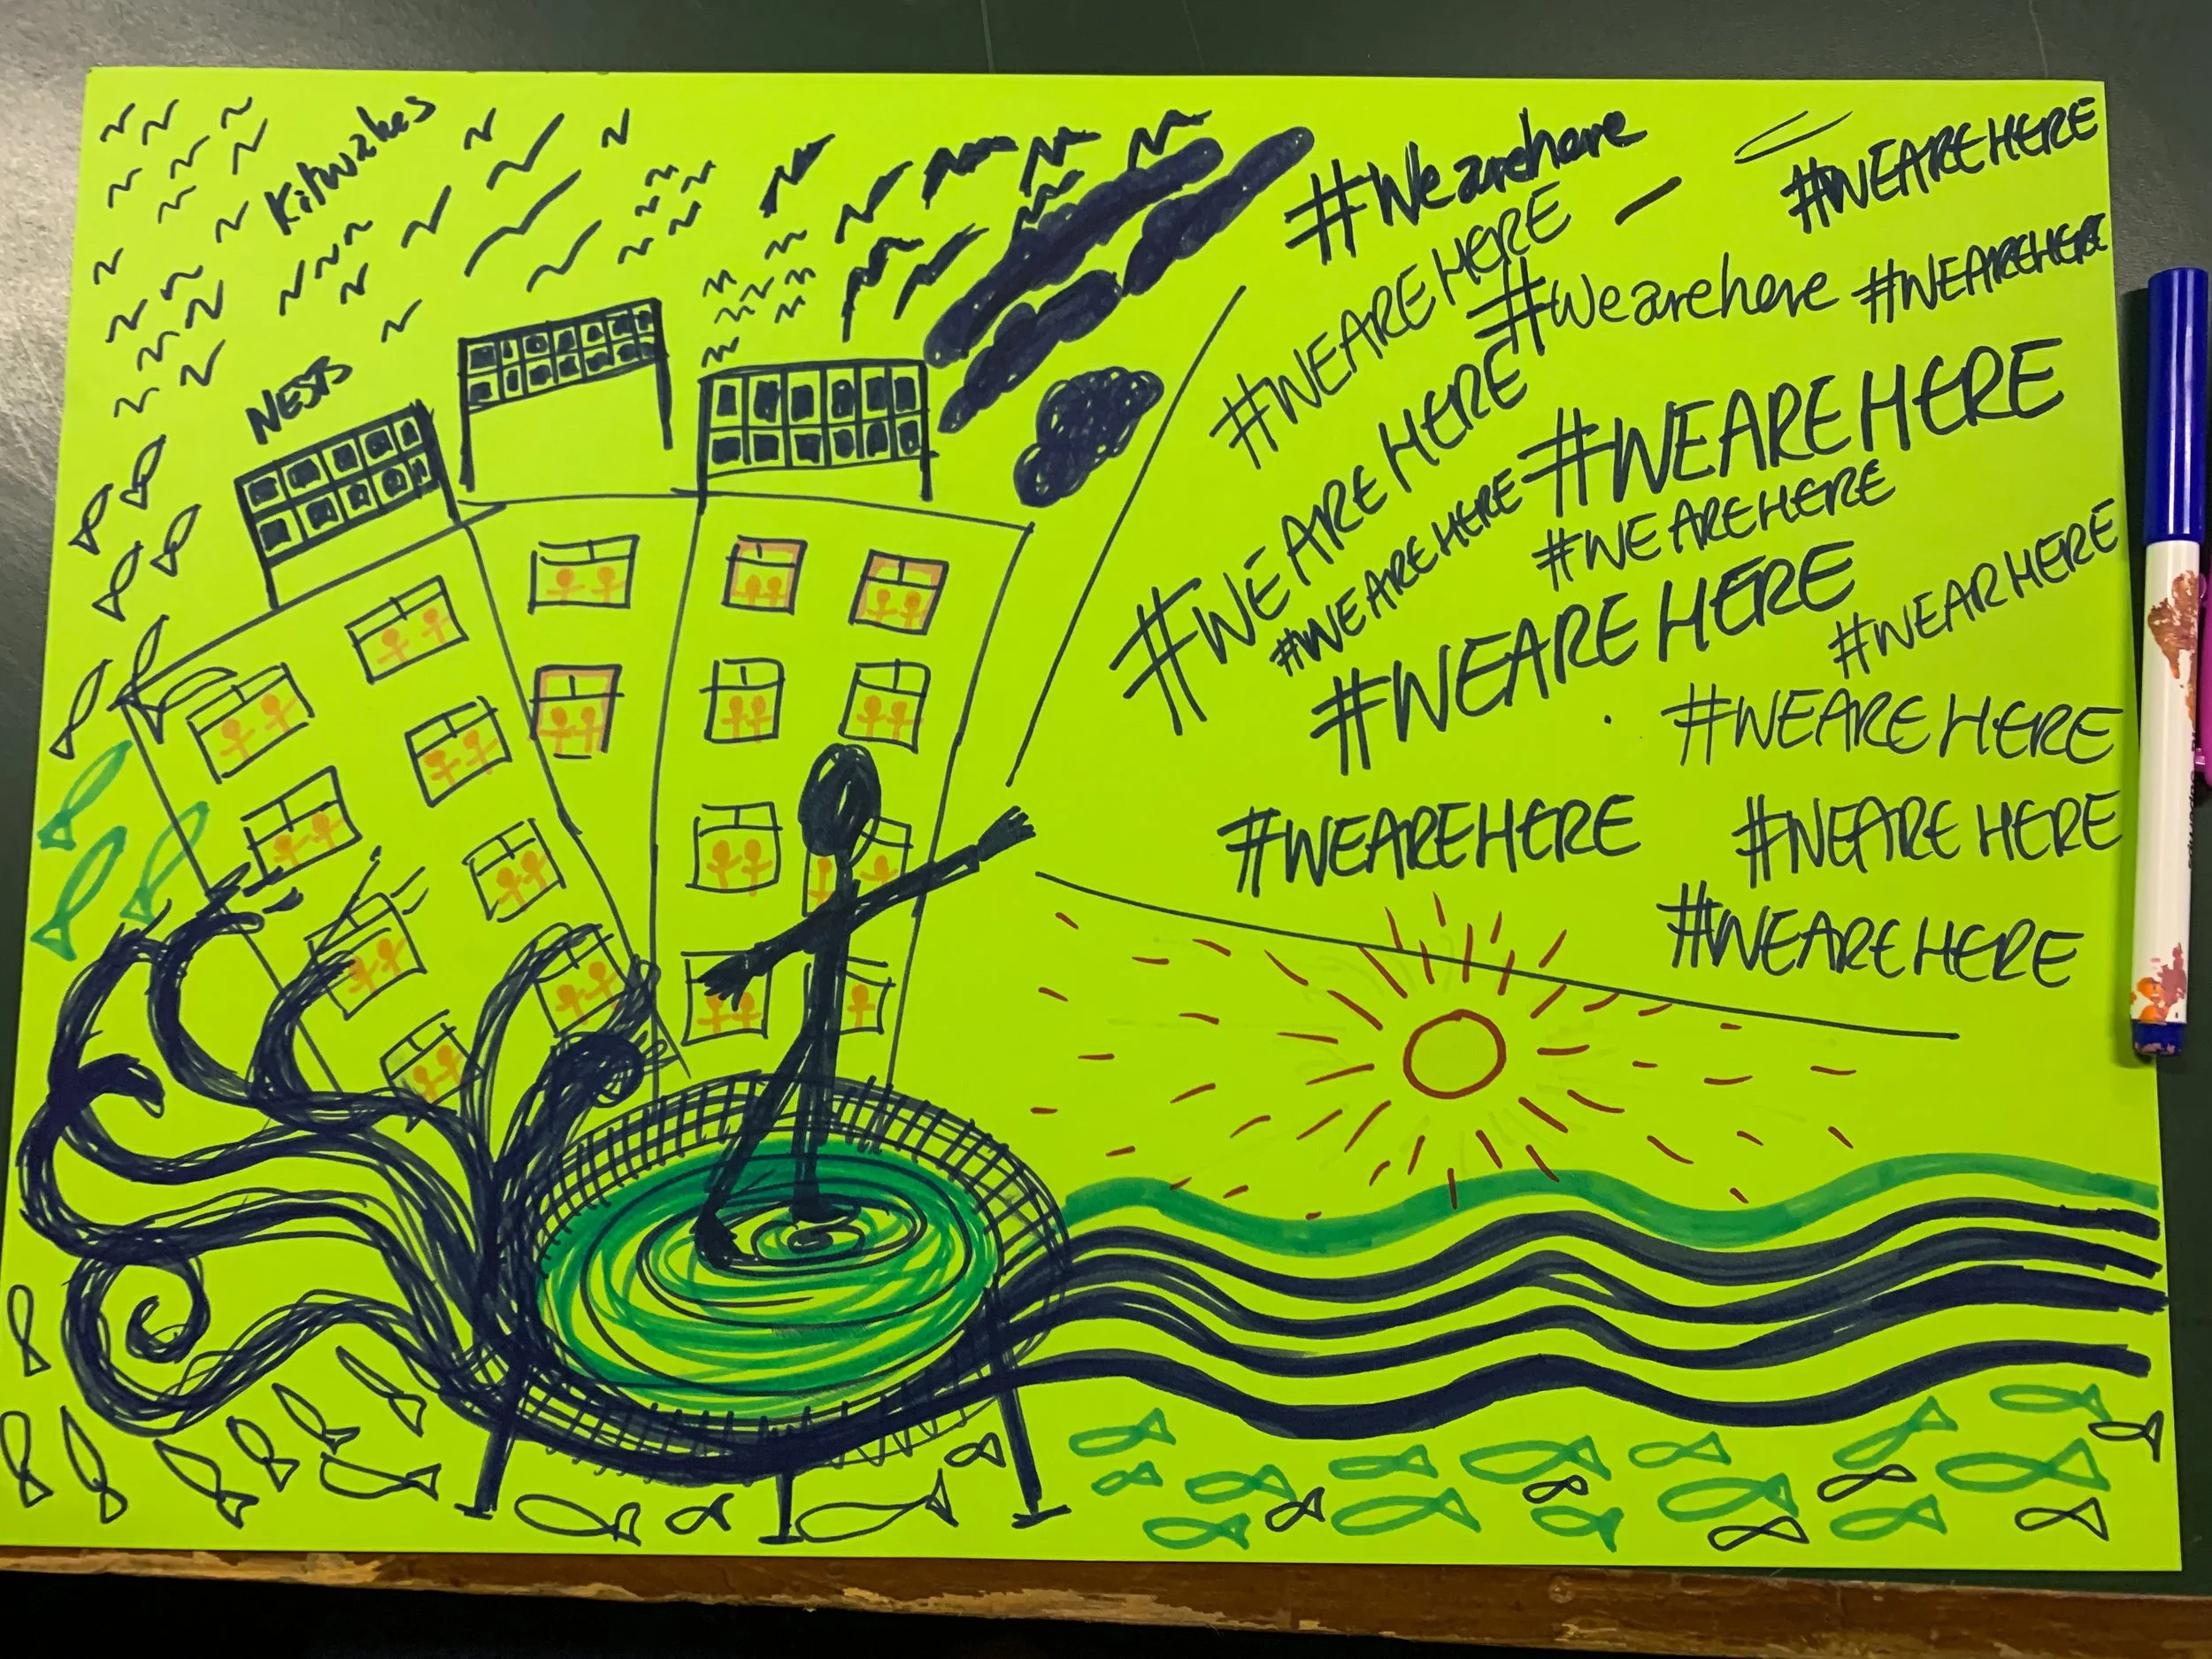 Kitwakes
NESTS
#Wearehere
#WEAREHERE
#WEAREHERE
#Wearehere
#WEAREHERE
#WEAREHERE
#WEAREHERE
#WEAREHERE
#WEAREHERE
#WEAREHERE
#WEARHERE
#WEAREHERE
#WEAREHERE
#WEAREHERE
#WEAREHERE